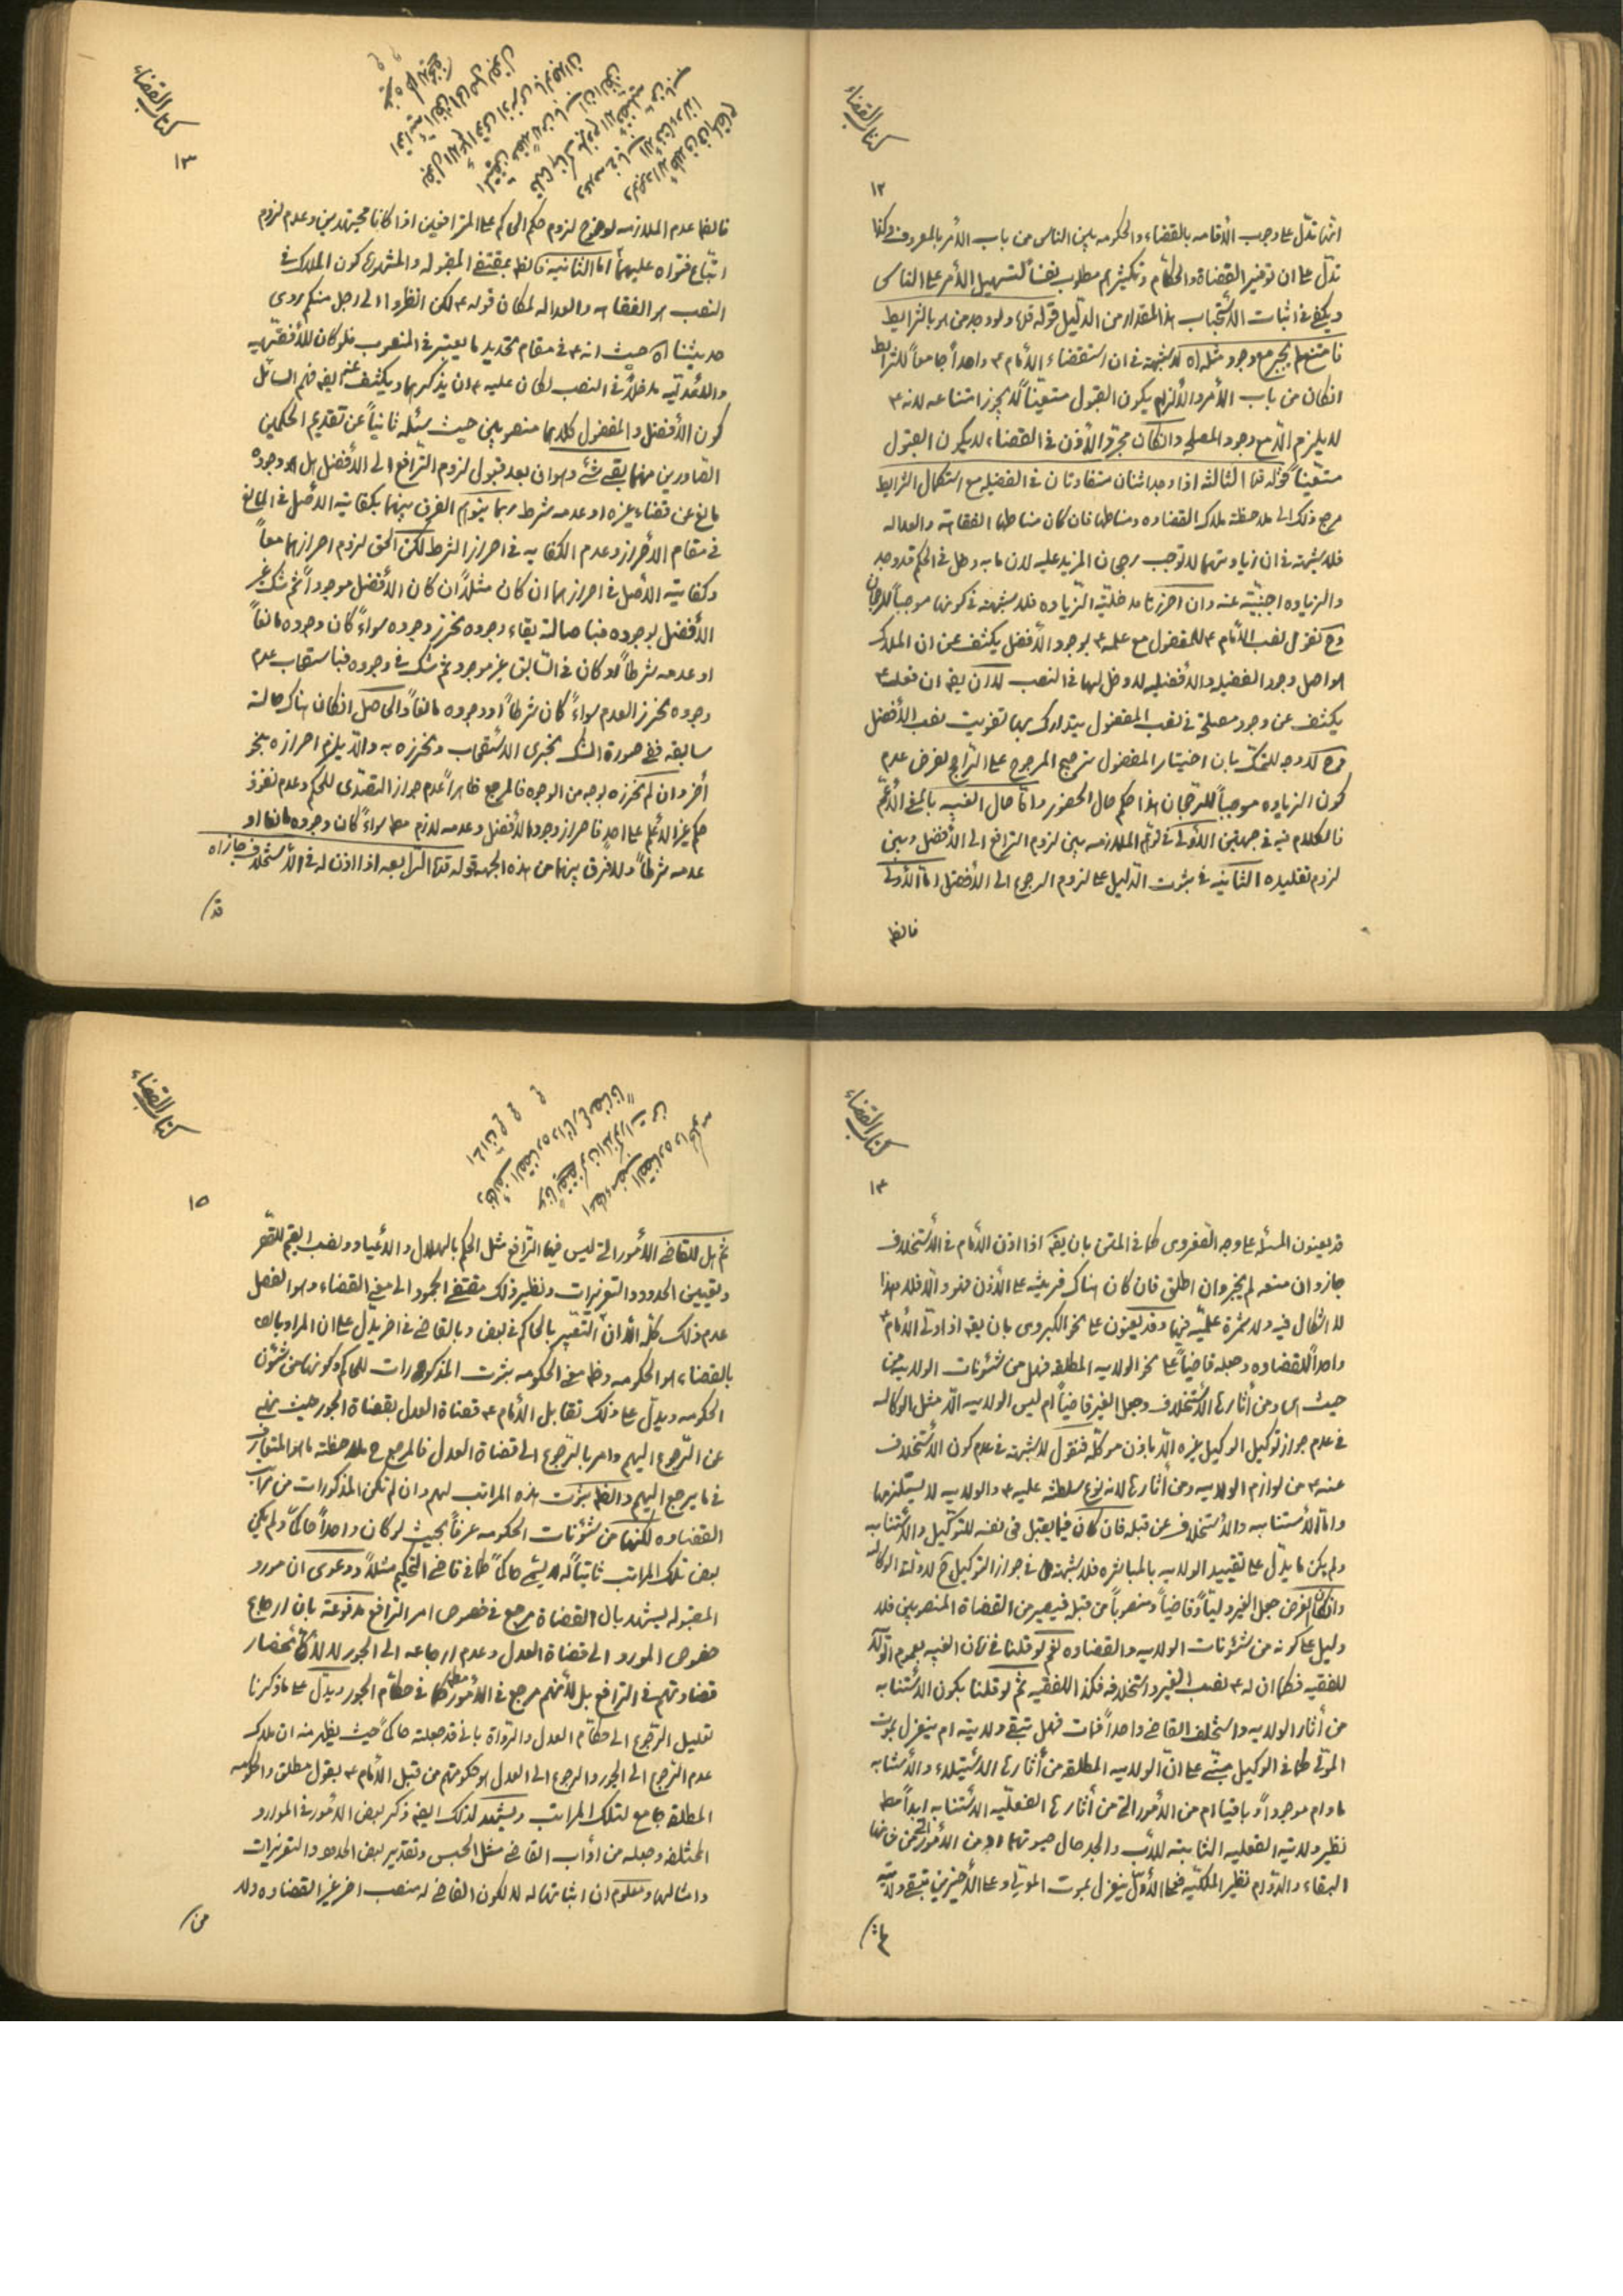 كتاب القضاء
١٢
انها تدل على وجوب الأقامه بالقضاء والحكومه بين الناس من باب الأمر بالمعروف وكذا
تدل على ان توفير القضاة والحكام وتكثيرهم مطلوب نفساً لتسهيل الأمر على الناس
ويكفى فى اثبات الأستحباب هذا المقدار من الدليل قوله قده ولو وجد من هو بالشرايط
فامتنع لم يجبر مع وجود مثله اه لا شبهة فى ان استقضاء الأمام ع واحداً جامعاً للشرايط
انكان من باب الأمر والألزام يكون القبول متعيناً لا يجوز امتناعه لانه ع
لا يلزم الا مع وجود المصلحه وانكان مجرد الأذن فى القضاء لا يكون القبول
متعيناً قوله قده الثالثة اذا وجد اثنان متفاوتان فى الفضيله مع استكمال الشرايط
مرجع ذلك الى ملاحظة ملاك القضاوه ومناطها فان كان مناطها الفقاهة والعداله
فلا شبهة فى ان زيادتهما لا توجب رجحان المزيد عليه لان ما به دخل فى الحكم قد وجد
والزياده اجنبيّة عنه وان احرزنا مدخليّة الزياده فلا شبهة فى كونها موجباً للرجحان
وح نقول نصب الأمام ع للمفضول مع علمه ع بوجود الأفضل يكشف عن ان الملاك
هو اصل وجود الفضيله والأفضليه لا دخل لها فى النصب لا ان يقه ان فعله ع
يكشف عن وجود مصلحة فى نصب المفضول يتدارك بها تفويت نصب الأفضل
وح لا وجه للتمسك بان اختيار المفضول ترجيح المرجوح على الراجح لفرض عدم
كون الزياده موجباً للرجحان هذا حكم حال الحضور وامّا حال الغيبه بالمعنى الأعم
فالكلام فيه فى جهتين الأولى فى توهم الملازمه بين لزوم الترافع الى الأفضل وبين
لزوم تقليده الثانيه فى ثبوت الدليل على لزوم الرجوع الى الأفضل اما الأولى
فالظه
كتاب القضاء
١٣
فالظه عدم الملازمه لوضوح لزوم حكم الحاكم على المترافعين اذا كانا مجتهدين وعدم لزوم
اتباع فتواه عليهما امّا الثانيه فالظه بمقتضى المقبوله والمشهوره كون الملاك فى
النصب هو الفقاهه والعداله لمكان قوله ع لكن انظروا الى رجل منكم يروى
حديثنا اه حيث انه ع فى مقام تحديد ما يعتبر فى المنصوب فلو كان للأفقهيه
والأعدليه مدخلاً فى النصب لكان عليه ع ان يذكرهما ويكشف عنه ايضه فهم السائل
كون الأفضل والمفضول كلاهما منصوبين حيث سئله ثانياً عن تقديم الحكمين
الصادرين منهما بقى شئ وهو ان بعد قبول لزوم الترافع الى الأفضل هل هو وجوده
مانع عن قضاء غيره او عدمه شرط ربما يتوهم الفرق بينهما بكفاية الأصل فى المانع
فى مقام الأحراز وعدم الكفايه فى احراز الشرط لكن الحق لزوم احرازهما معاً
وكفاية الأصل فى احرازهما ان كان مثلاً ان كان الأفضل موجوداً ثم شك
الأفضل بوجوده فباصالة بقاء وجوده نحرز وجوده سواءً كان وجوده مانعاً
او عدمه شرطاً ولو كان فى السابق غير موجود ثم شك فى وجوده فباستصحاب عدم
وجوده نحرز العدم سواءً كان شرطاً او وجوده مانعاً والحاصل انكان هناك حالة
سابقه ففى صورة الشك يجرى الأستصحاب ونحرزه به والا يلزم احرازه بنحو
أخر وان لم نحرزه بوجه من الوجوه فالمرجع ظاهراً عدم جواز التصدى للحكم وعدم نفوذ
حكم غير الأعلم على احد فاحراز وجود الأفضل وعدمه لازم مطه سواءً كان وجوده مانعا او
عدمه شرطاً ولا فرق بينهما من هذه الجهه قوله قده الرابعه اذا اذن له فى الأستخلاف جاز اه
قد
كتاب القضاء
١٤
قد يعنون المسئله على وجه الصغروى كما فى المتن بان يقه اذا اذن الأمام فى الأستخلاف
جاز وان منعه لم يجز وان اطلق فان كان هناك قرينه على الأذن فهو والا فلا هذا
لا اشكال فيه ولا ثمرة علميّه فيها وقد يعنون على نحو الكبروى بان يقه اذا ولّى الأمام ع
واحداً للقضاوه وجعله قاضياً على نحو الولايه المطلقه فهل من شئونات الولايه
حيث هى ومن أثارها الأستخلاف وجعل الغير قاضياً ام ليس الولايه الا مثل الوكاله
فى عدم جواز توكيل الوكيل غيره الا باذن موكله فنقول لا شبهة فى عدم كون الأستخلاف
عنه ع من لوازم الولايه ومن أثارها لانه نوع سلطنة عليه ع والولايه لا يستلزمها
وامّا الأستنابه والأستخلاف عن قبله فان كان فيما يقبل فى نفسه للتوكيل والأستنابه
ولم يكن ما يدل على تقييد الولايه بالمباشره فلا شبهة فى جواز التوكيل ح لادلة الوكاله
وانكان الغرض جعل الغير ولياً وقاضياً ومنصوباً من قبله فيصير من القضاة المنصوبين فلا
دليل على كونه من شئونات الولايه والقضاوه نعم لو قلنا فى زمان الغيبه بعموم الولايه
للفقيه فكما ان له ع نصب الغير واستخلافه فكذا للفقيه ثم لو قلنا بكون الأستنابه
من أثار الولايه واستخلف القاضى واحداً فمات فهل تبقى ولايته ام ينعزل بموت
المولّى كما فى الوكيل مبنىّ على انّ الولايه المطلقه من أثارها الأستيلاء والأستنابه
ما دام موجوداً وباقيا ام من الأمور التى من أثارها الفعليّه الأستنابه ابداً مطه
نظير ولاية الفعليه الثابته للأب والجد حال حيوتهما او من الأمور التى من شانها
البقاء والدوام نظير الملكيّه فعلى الأول ينعزل بموت المولّى وعلى الأخيرين تبقى ولايته
كتاب القضاء
١٥
ثم هل للقاضى الأمور التى ليس فيها الترافع مثل الحكم بالهلال والأعياد ونصب القيم للقصر
وتعيين الحدود والتعزيرات ونظير ذلك مقتضى الجمود الى معنى القضاء وهو الفصل
عدم ذلك كلّه الّا انّ التعبير بالحاكم فى بعض وبالقاضى فى اخر يدلّ على ان المراد
بالقضاء هو الحكومه وظه معنى الحكومه ثبوت المذكورات للحاكم وكونها من شئون
الحكومه ويدل على ذلك تقابل الأمام ع قضاة العدل بقضاة الجور حيث نهى
عن الرجوع اليهم وامر بالرجوع الى قضاة العدل فالمرجع ح ملاحظة ما هو المتعارف
فى ما يرجع اليهم والظه ثبوت هذه المراتب لهم وان لم تكن المذكورات من مراتب
القضاوه لكنها من شئونات الحكومه عرفاً بحيث لو كان واحداً حاكماً ولم يكن
بعض تلك المراتب ثابتاً له لا يسمى حاكماً كما فى قاضى التحكيم مثلاً ودعوى ان مورد
المقبوله يشهد بان القضاة مرجع فى خصوص امر الترافع مدفوعة بان ارجاع
خصوص المورد الى قضاة العدل وعدم ارجاعه الى الجور لا لأنحصار
قضاوتهم فى الترافع بل لأنهم مرجع فى الأمور مطه كما فى حكّام الجور ويدل على ما ذكرنا
تعليل الرجوع الى حكّام العدل والرواة بانى قد جعلته حاكماً حيث يظهر منه ان ملاك
عدم الرجوع الى الجور والرجوع الى العدل هو حكومتهم من قبل الأمام ع بقول مطلق والحكومه
المطلقه جامع لتلك المراتب ويشهد لذلك ايضه ذكر بعض الأمور فى الموارد
المختلفه وجعله من أداب القاضى مثل الحبس وتقدير بعض الحدود والتعزيرات
وامثالها ومعلوم ان اثباتها له لا لكون القاضى له منصب اخر غير القضاوه ولا
من